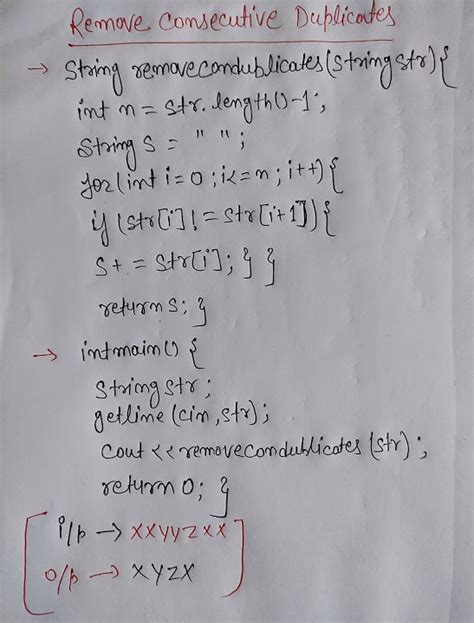 Remove Consecutive Duplicates
→ String removecondublicates(String str){
int n = str.length()-1;
String s = " ";
for(int i=0; i<=n; i++){
if (str[i] != str[i+1]){
s+ = str[i]; } }
return s; }
→ int main() {
String str;
getline (cin, str);
cout << removecondublicates (str);
return 0; }
i/p → xxyyzxx
o/p → xyzx